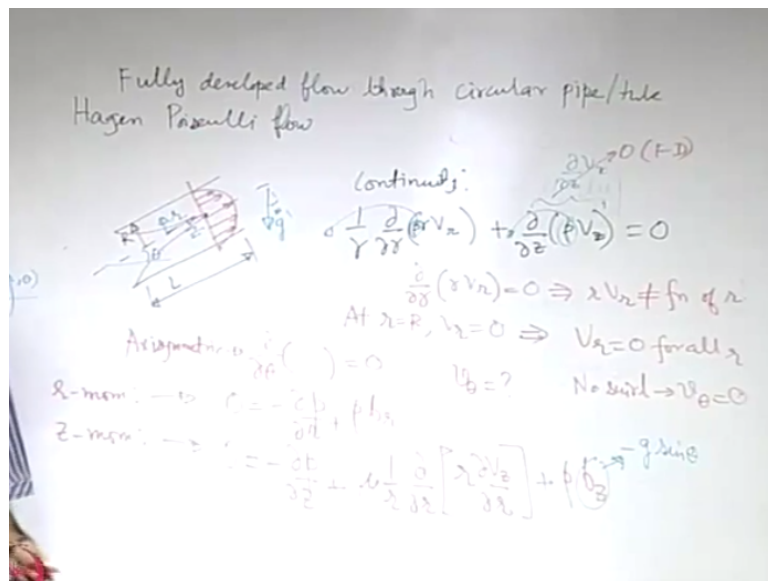 Fully developed flow through circular pipe/tube
Hagen Poiseulli flow
∂Vz/∂z → 0 (FD)
Continuity:
1/r ∂/∂r (ρrVr) + ∂/∂z (ρVz) = 0
R
θ
r
z
L
g
,0)
∂/∂r (rVr) = 0 ⇒ rVr ≠ fn of r
At r=R, Vr=0 ⇒ Vr=0 for all r
Axisymmetric ⇒ ∂/∂θ ( ) = 0
Vθ = ? No swirl → Vθ = 0
r-mom: → 0 = -∂p/∂r + ρbr
z-mom: → 0 = -∂p/∂z + μ 1/r ∂/∂r [r ∂Vz/∂r] + ρbz → -g sinθ